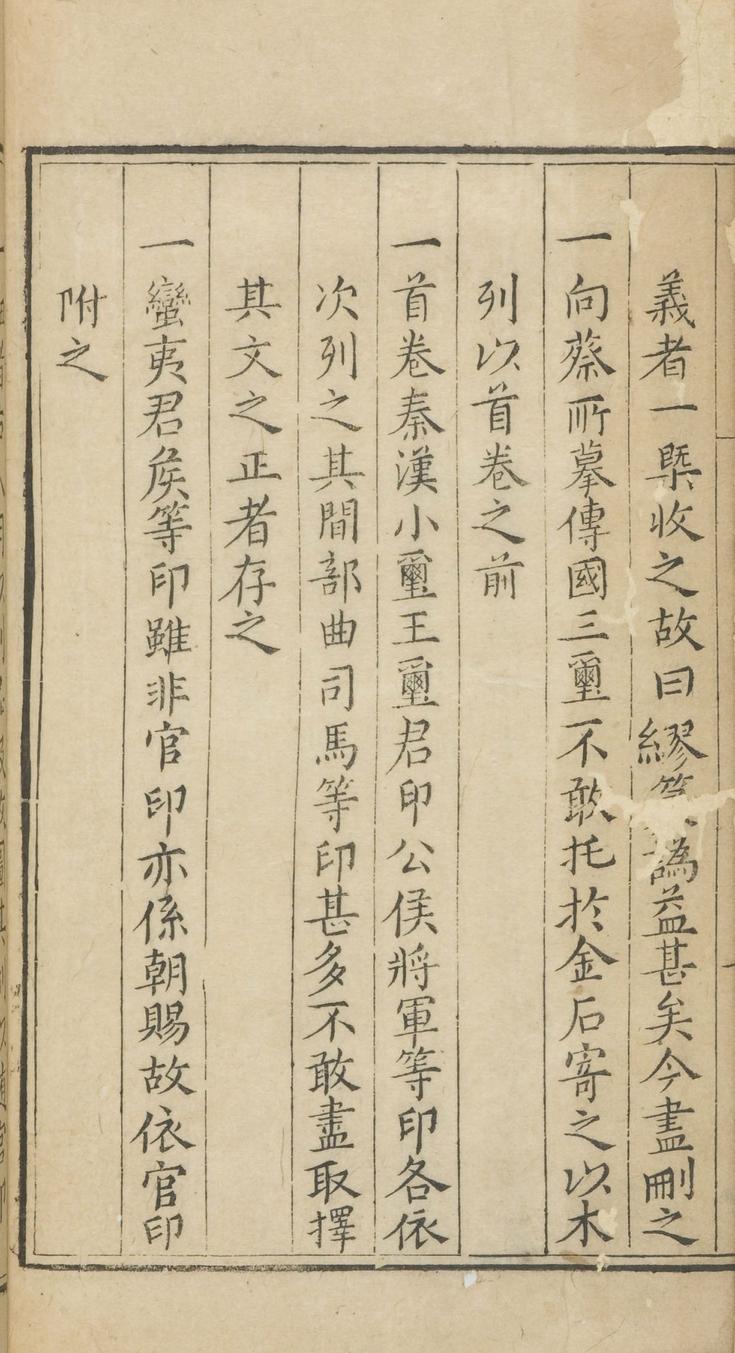 義者一槩收之故曰繆篆譌益甚矣今盡刪之
一向蔡所摹傳國三璽不敢托於金石寄之以木
列以首卷之前
一首卷秦漢小璽王璽君印公侯將軍等印各依
次列之其間部曲司馬等印甚多不敢盡取擇
其文之正者存之
一蠻夷君矦等印雖非官印亦係朝賜故依官印
附之